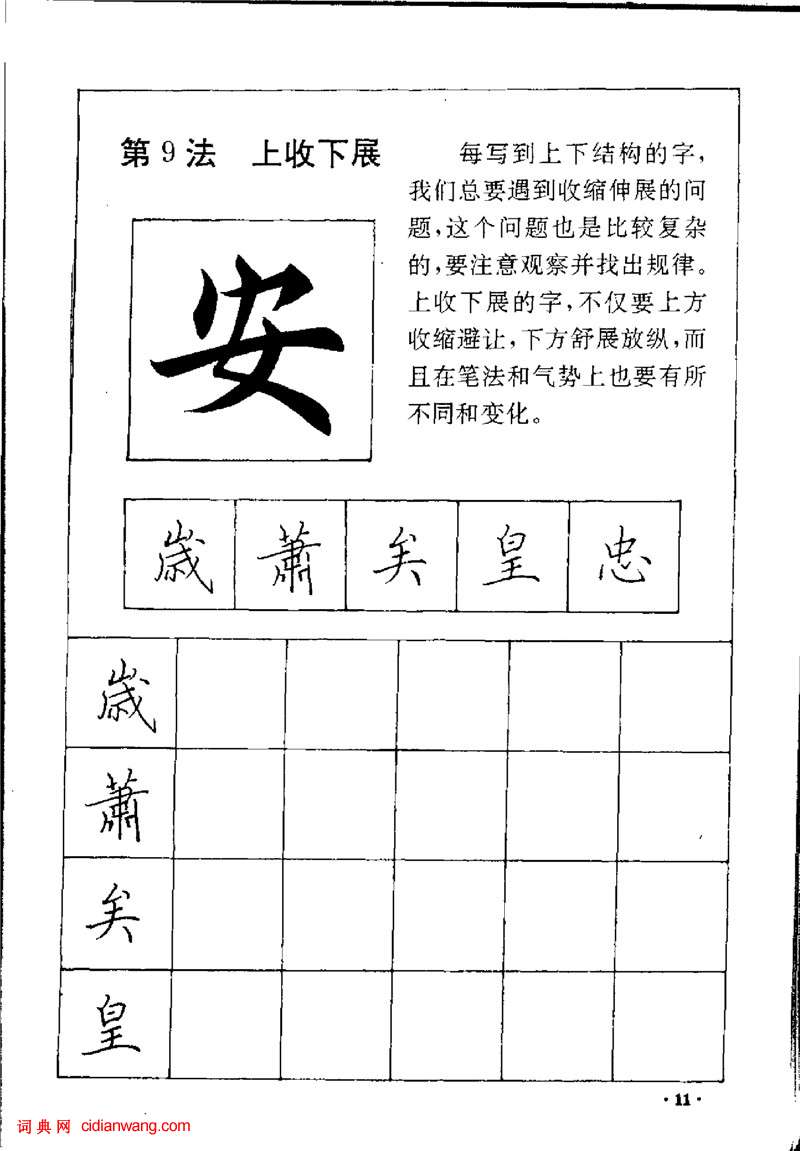 第9法 上收下展
每写到上下结构的字,
我们总要遇到收缩伸展的问
题,这个问题也是比较复杂
的,要注意观察并找出规律。
上收下展的字,不仅要上方
收缩避让,下方舒展放纵,而
且在笔法和气势上也要有所
不同和变化。
安
歳 蕭 矣 皇 忠
歳
蕭
矣
皇
·11·
词典网 cidianwang.com